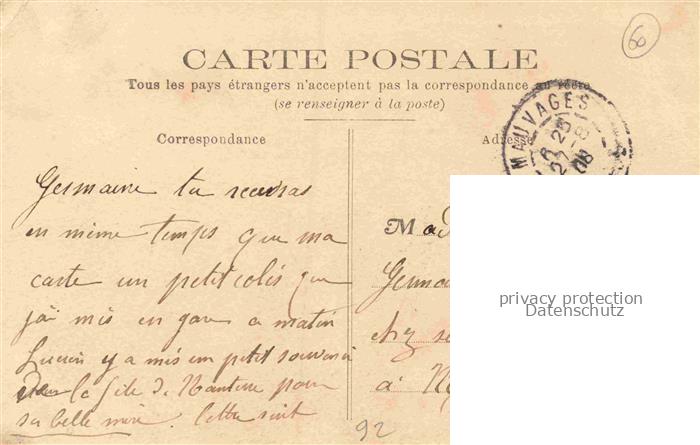 66
CARTE POSTALE
Tous les pays étrangers n'acceptent pas la correspondance au recto
(se renseigner à la poste)
Correspondance
Adresse
MAUVAGES
8 25
27 -8
08
Germaine tu recevras
en même temps que ma
carte un petit colis que
j'ai mis en gare ce matin
Lucien y a mis un petit souvenir
de la fête de Nanterre pour
sa belle mère. lettre suit
Mad
Germai
chez
à
privacy protection
Datenschutz
92